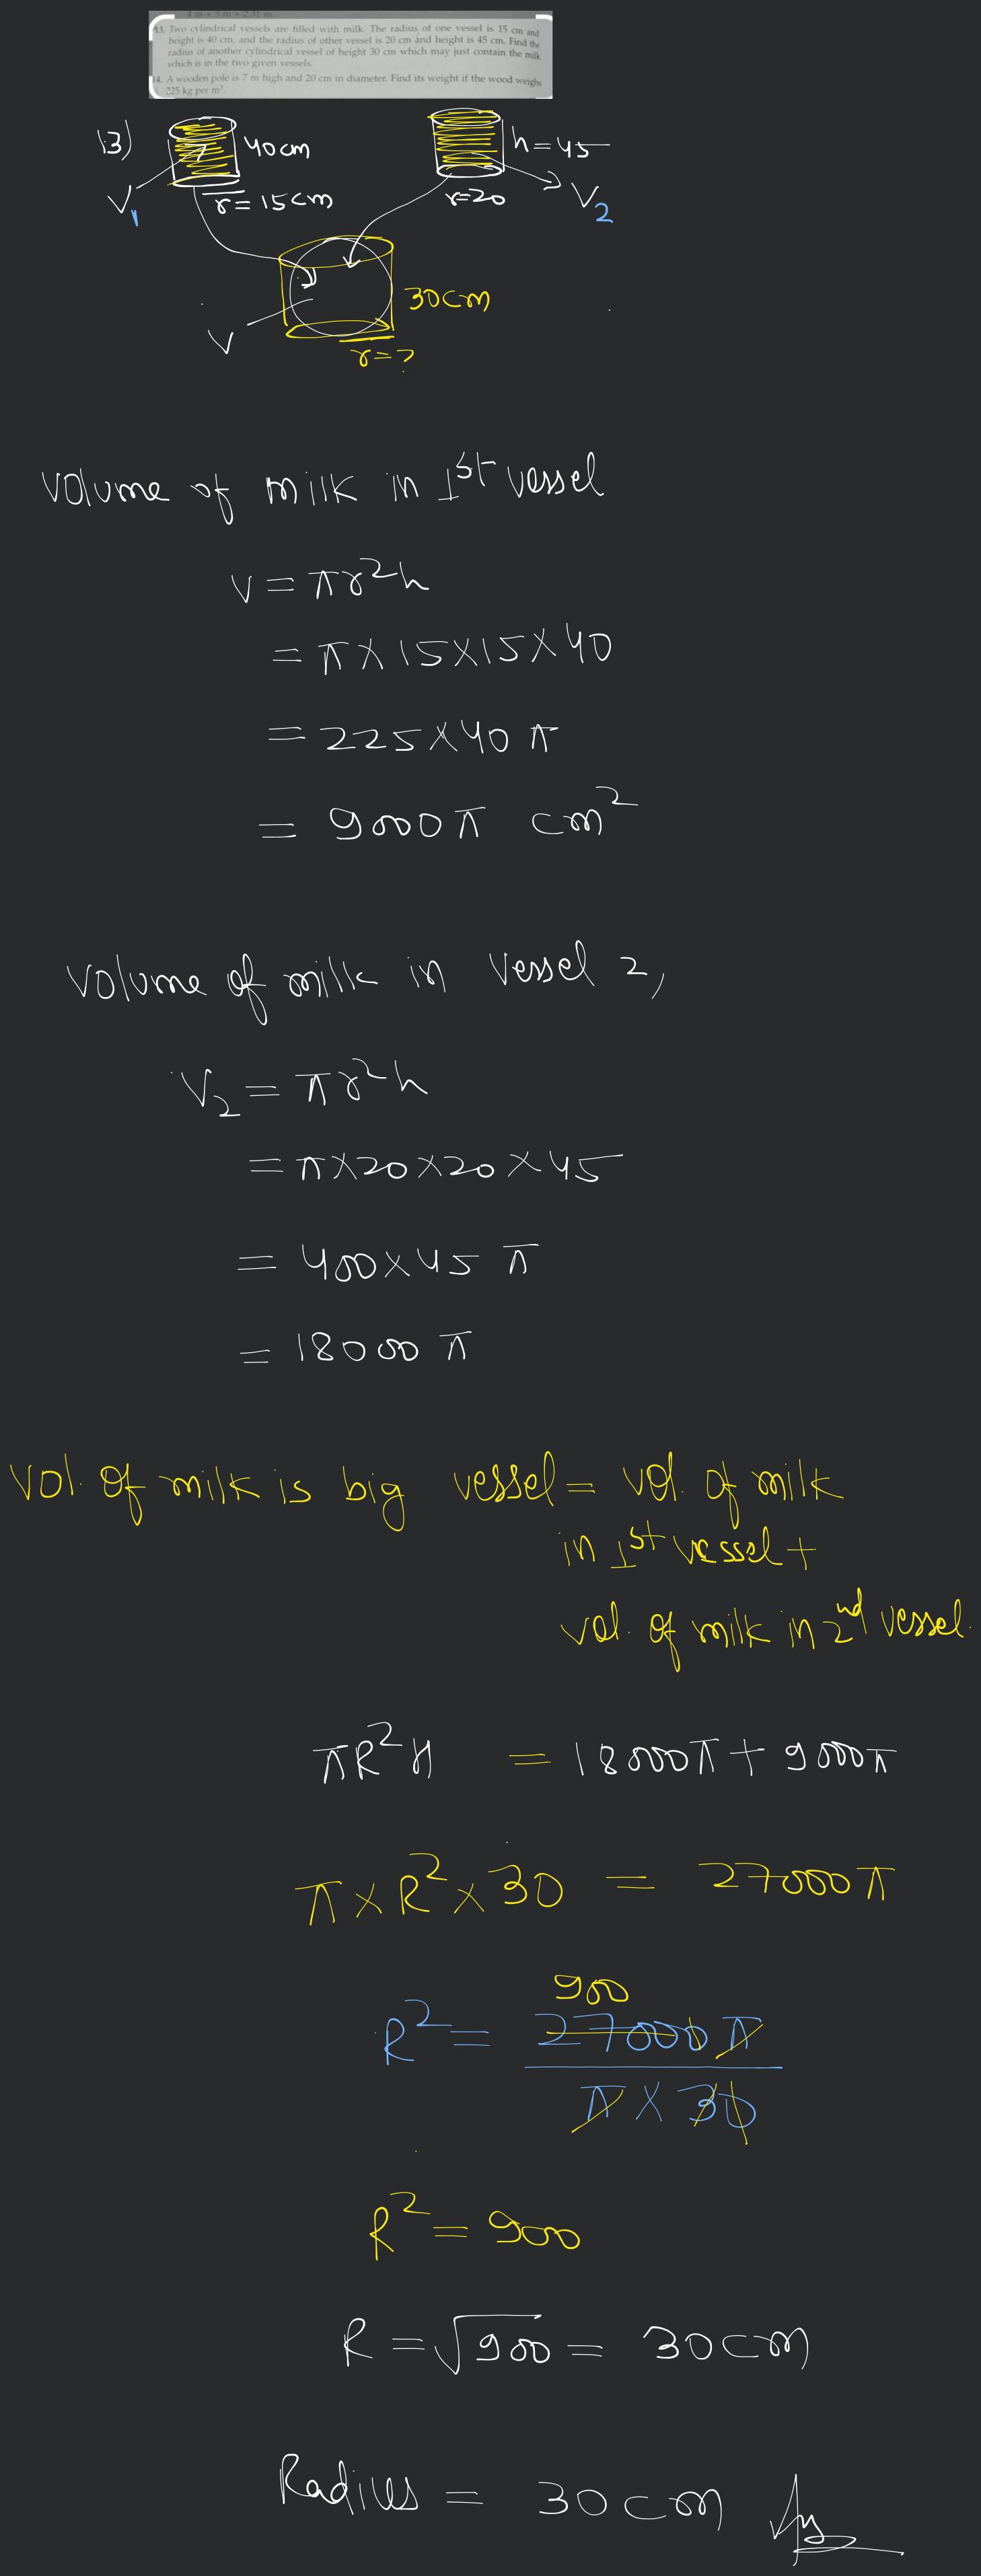 4 m + 3 m + 2.31 m
13. Two cylindrical vessels are filled with milk. The radius of one vessel is 15 cm and
height is 40 cm, and the radius of other vessel is 20 cm and height is 45 cm. Find the
radius of another cylindrical vessel of height 30 cm which may just contain the milk
which is in the two given vessels.
14. A wooden pole is 7 m high and 20 cm in diameter. Find its weight if the wood weighs
225 kg per m³.
13) 40cm h=45
V₁ r=15cm r=20 V₂
30cm
V r=?
Volume of milk in 1st vessel
V = πr²h
= π×15×15×40
= 225×40 π
= 9000π cm²
Volume of milk in vessel 2,
V₂ = πr²h
= π×20×20×45
= 400×45 π
= 18000 π
Vol. of milk is big vessel = vol. of milk
in 1st vessel +
vol. of milk in 2nd vessel.
πR²H = 18000π + 9000π
π×R²×30 = 27000π
900
R² = 27000π
π×30
R² = 900
R = √900 = 30cm
Radius = 30cm